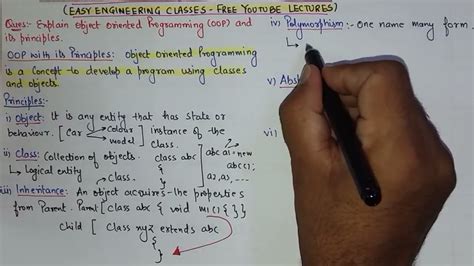 (EASY ENGINEERING CLASSES - FREE YOUTUBE LECTURES)
Ques:- Explain Object Oriented Programming (OOP) and
its principles.
OOP with its Principles: Object Oriented Programming
is a Concept to develop a program using classes
and objects.
Principles:-
i) Object: It is any entity that has state or
behaviour. [Car → colour
→ model] instance of the
class.
ii) Class: Collection of objects.
↳ logical entity
class abc
{
}
abc a1 = new
abc();
a2, a3, ----
iii) Inheritance: An object acquires the properties
from Parent. Parent [class abc { void m1() { } }
Child [ class xyz extends abc
{
}
iv) Polymorphism:- One name many form
↳
v) Abst
vi)